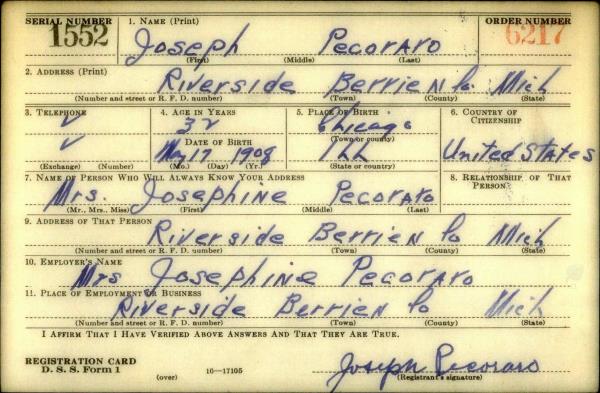 SERIAL NUMBER 1. NAME (Print) ORDER NUMBER
1552 Joseph Pecoraro 6217
(First) (Middle) (Last)
2. ADDRESS (Print)
Riverside Berrien Co. Mich
(Number and street or R. F. D. number) (Town) (County) (State)
3. TELEPHONE 4. AGE IN YEARS 5. PLACE OF BIRTH 6. COUNTRY OF CITIZENSHIP
32 Chicago
DATE OF BIRTH (Town or county)
May 17 1908 Ill United States
(Exchange) (Number) (Mo.) (Day) (Yr.) (State or country)
7. NAME OF PERSON WHO WILL ALWAYS KNOW YOUR ADDRESS 8. RELATIONSHIP OF THAT PERSON
Mrs. Josephine Pecoraro
(Mr., Mrs., Miss) (First) (Middle) (Last)
9. ADDRESS OF THAT PERSON
Riverside Berrien Co Mich
(Number and street or R. F. D. number) (Town) (County) (State)
10. EMPLOYER'S NAME
Mrs Josephine Pecoraro
11. PLACE OF EMPLOYMENT OR BUSINESS
Riverside Berrien Co Mich
(Number and street or R. F. D. number) (Town) (County) (State)
I AFFIRM THAT I HAVE VERIFIED ABOVE ANSWERS AND THAT THEY ARE TRUE.
REGISTRATION CARD
D. S. S. Form 1 (over) 16—17105 Joseph Pecoraro
(Registrant's signature)